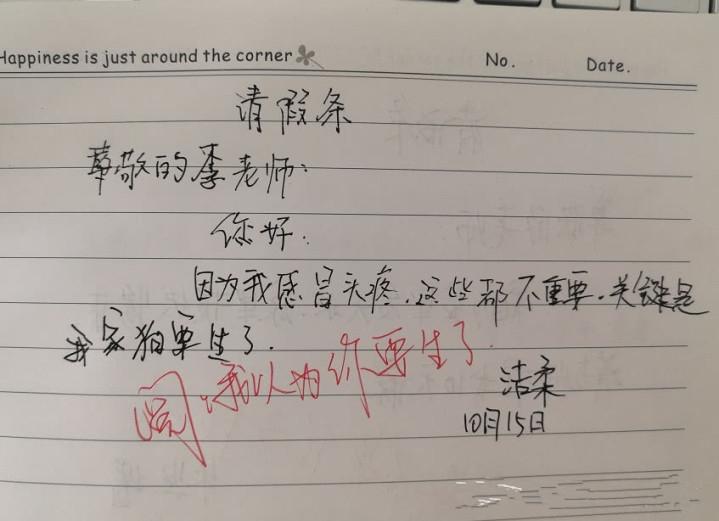 Happiness is just around the corner
No.
Date.
请假条
尊敬的李老师:
你好.
因为我感冒头疼.这些都不重要.关键是
我家狗要生了.
同.我以为你要生了.
洁柔
10月15日